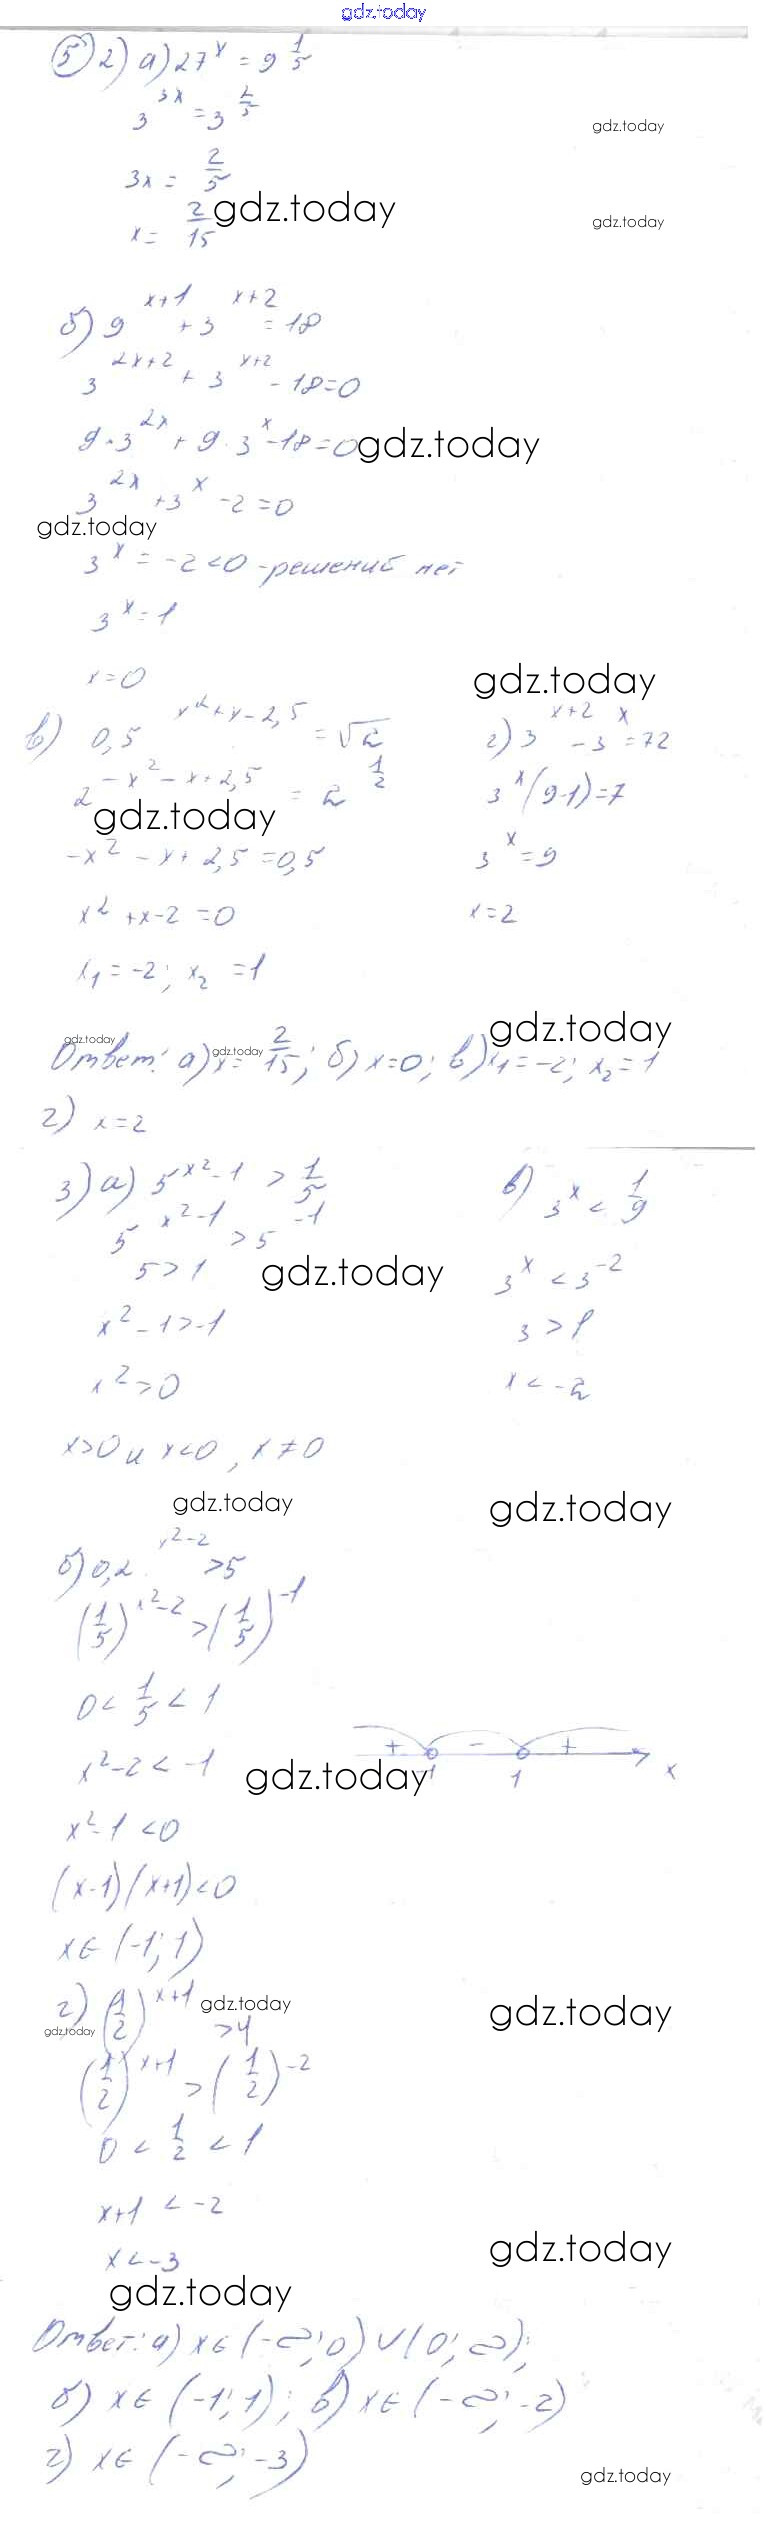 gdz.today
5 2) а) 27^x = 9^(1/5)
3^(3x) = 3^(2/5)
gdz.today
3x = 2/5
x = 2/15
gdz.today
gdz.today
б) 9^(x+1) + 3^(x+2) = 18
3^(2x+2) + 3^(x+2) - 18 = 0
9·3^(2x) + 9·3^x - 18 = 0
gdz.today
3^(2x) + 3^x - 2 = 0
gdz.today
3^x = -2 < 0 - решений нет
3^x = 1
x = 0
gdz.today
в) 0,5^(x²+x-2,5) = √2
2^(-x²-x+2,5) = 2^(1/2)
gdz.today
-x² - x + 2,5 = 0,5
x² + x - 2 = 0
x₁ = -2; x₂ = 1
г) 3^(x+2) - 3^x = 72
3^x (9-1) = 7
3^x = 9
x = 2
gdz.today
gdz.today
gdz.today
Ответ: а) x = 2/15; б) x=0; в) x₁ = -2; x₂ = 1
г) x = 2
3) а) 5^(x²-1) > 1/5
5^(x²-1) > 5^(-1)
5 > 1
gdz.today
x² - 1 > -1
x² > 0
x>0 и x<0, x ≠ 0
в) 3^x < 1/9
3^x < 3^(-2)
3 > 1
x < -2
gdz.today
gdz.today
б) 0,2^(x²-2) > 5
(1/5)^(x²-2) > (1/5)^(-1)
0 < 1/5 < 1
x² - 2 < -1
gdz.today
+ - +
-1 1 x
x² - 1 < 0
(x-1)(x+1) < 0
x ∈ (-1; 1)
г) (1/2)^(x+1) > 4
gdz.today
gdz.today
gdz.today
(1/2)^(x+1) > (1/2)^(-2)
0 < 1/2 < 1
x+1 < -2
x < -3
gdz.today
gdz.today
Ответ: а) x ∈ (-∞; 0) ∪ (0; ∞);
б) x ∈ (-1; 1); в) x ∈ (-∞; -2)
г) x ∈ (-∞; -3)
gdz.today